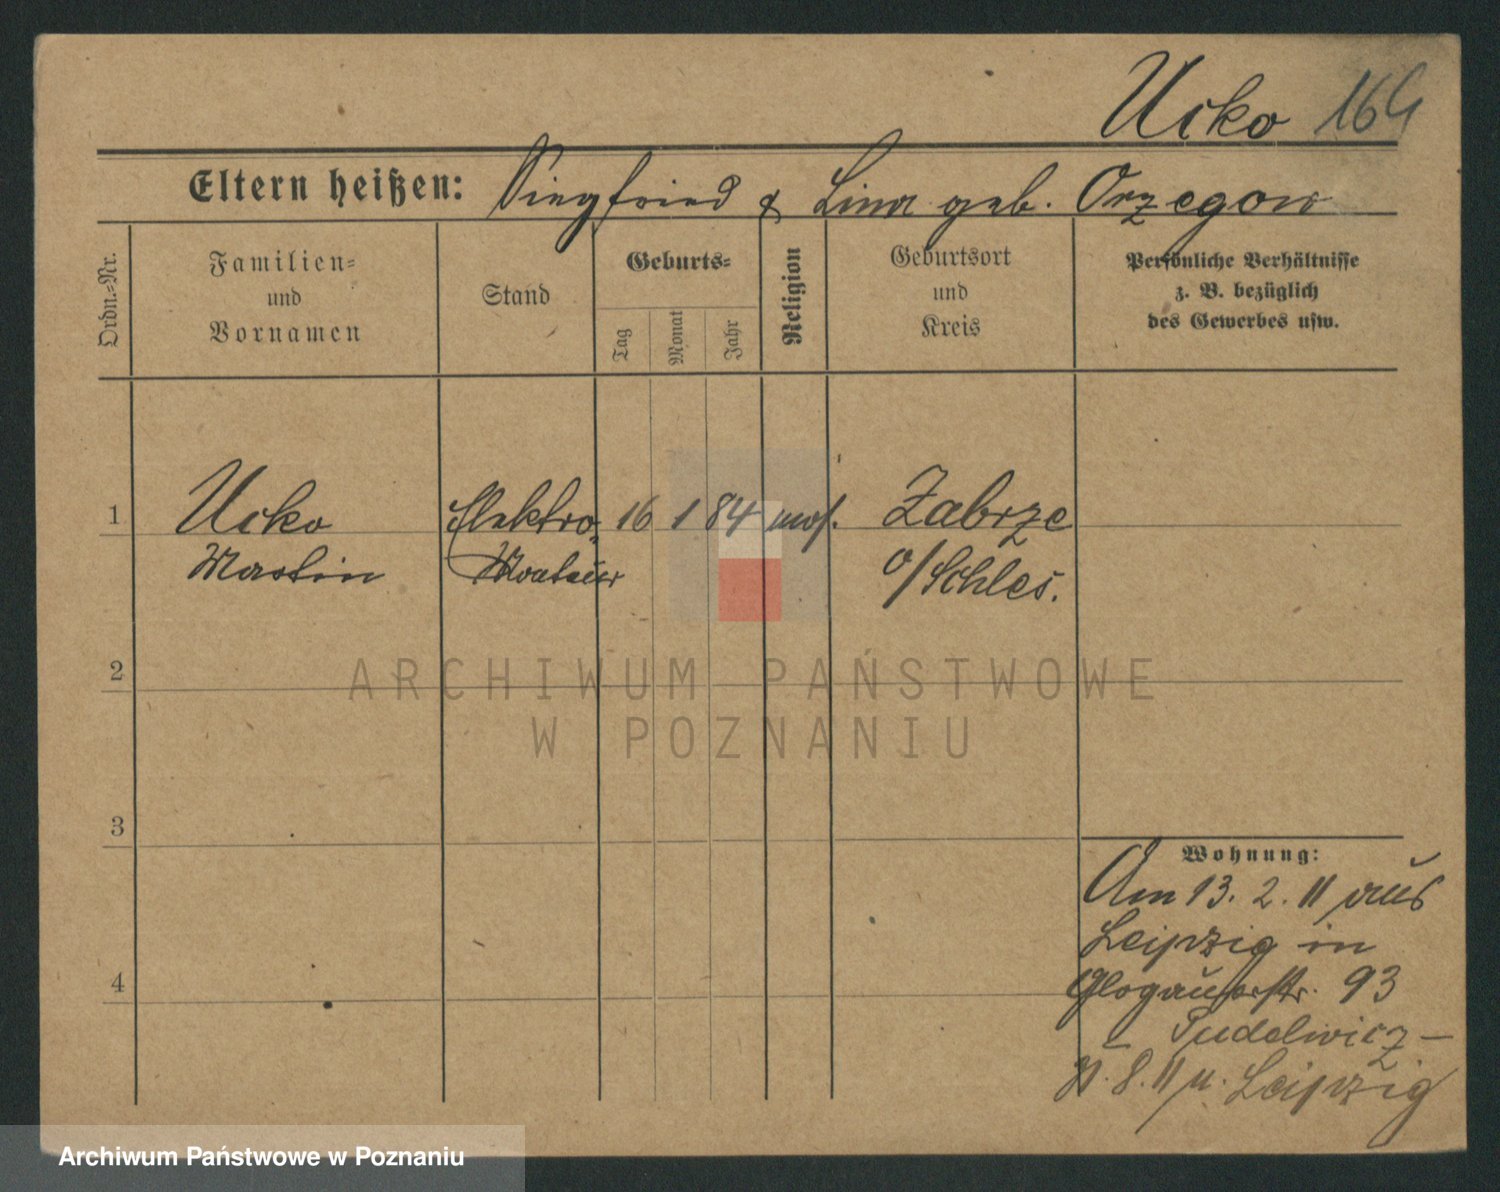 Ucko 164
Eltern heißen: Siegfried & Lina geb. Orzegow
Ordn.=Nr.
Familien=
und
Vornamen
Stand
Geburts=
Tag
Monat
Jahr
Religion
Geburtsort
und
Kreis
Persönliche Verhältnisse
z. B. bezüglich
des Gewerbes usw.
1 Ucko Elektro- 16 1 84 mos. Zabrze
Martin Monteur o/Schles.
2
ARCHIWUM PAŃSTWOWE
W POZNANIU
3
Wohnung:
Am 13. 2. 11 aus
Leipzig in
Glogauerstr. 93
4
– Pudelwicz –
8. 11 n. Leipzig
Archiwum Państwowe w Poznaniu